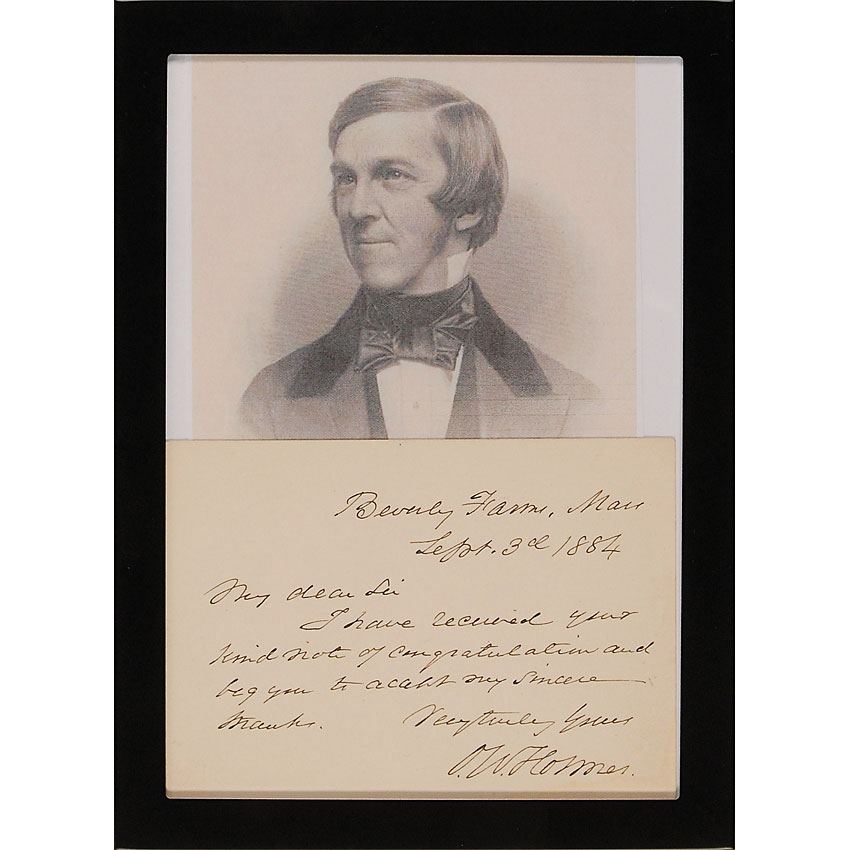 Beverly Farms, Mass
Sept. 3d 1884
My dear Sir
I have received your
kind note of congratulation and
beg you to accept my sincere
thanks. Very truly Yours
O. W. Holmes.